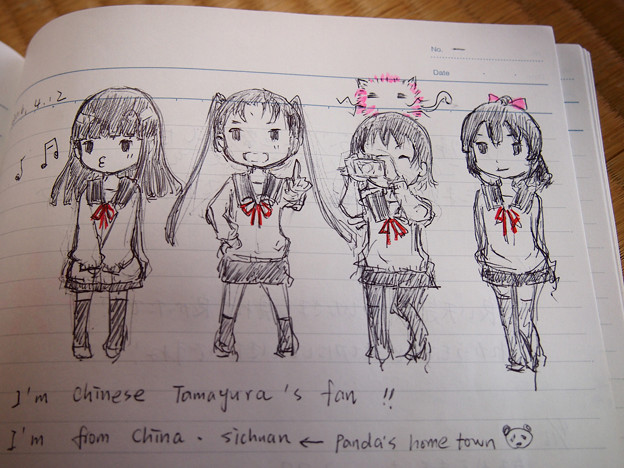 No. 一
Date
4.12
I'm Chinese Tamayura's fan !!
I'm from China. sichuan ← panda's home town